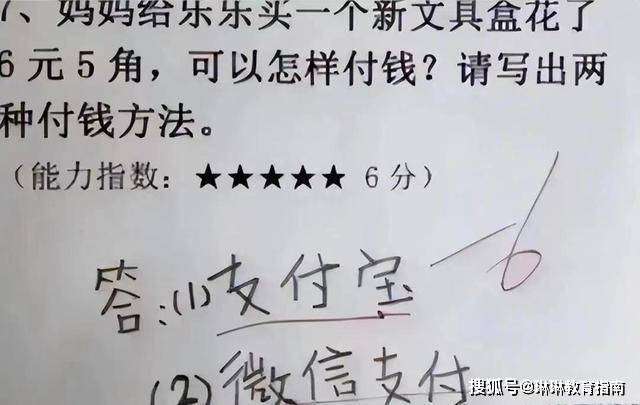 7、妈妈给乐乐买一个新文具盒花了
6元5角，可以怎样付钱？请写出两
种付钱方法。
（能力指数：★★★★★ 6分）
答：(1)支付宝 -6
(2)微信支付
搜狐号@琳琳教育指南